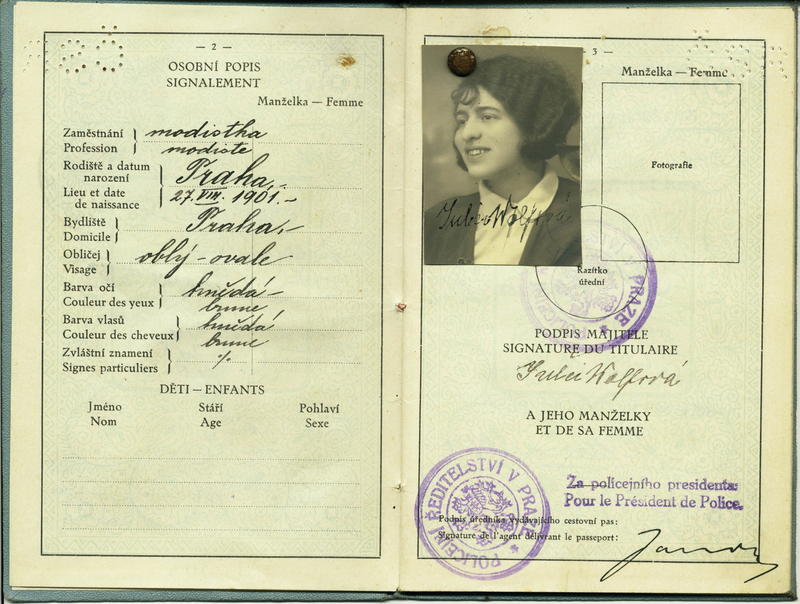 — 2 —
OSOBNÍ POPIS
SIGNALEMENT
Manželka — Femme
Zaměstnání
Profession
modistka
modiste
Rodiště a datum
narození
Lieu et date
de naissance
Praha,-
27. VIII. 1901.-
Bydliště
Domicile
Praha,-
Obličej
Visage
oblý - ovale
Barva očí
Couleur des yeux
hnědá -
brune
Barva vlasů
Couleur des cheveux
hnědá
brune
Zvláštní znamení
Signes particuliers
%
DĚTI — ENFANTS
Jméno Stáří Pohlaví
Nom Age Sexe
3 —
Manželka — Femme
Fotografie
Wolfová
Razítko
úřední
V PRAZE
PODPIS MAJITELE
SIGNATURE DU TITULAIRE
Wolfová
A JEHO MANŽELKY
ET DE SA FEMME
POLICEJNÍ ŘEDITELSTVÍ V PRAZE
Za policejního presidenta:
Pour le Président de Police.
Podpis úředníka vydávajícího cestovní pas:
Signature de l'agent délivrant le passeport: